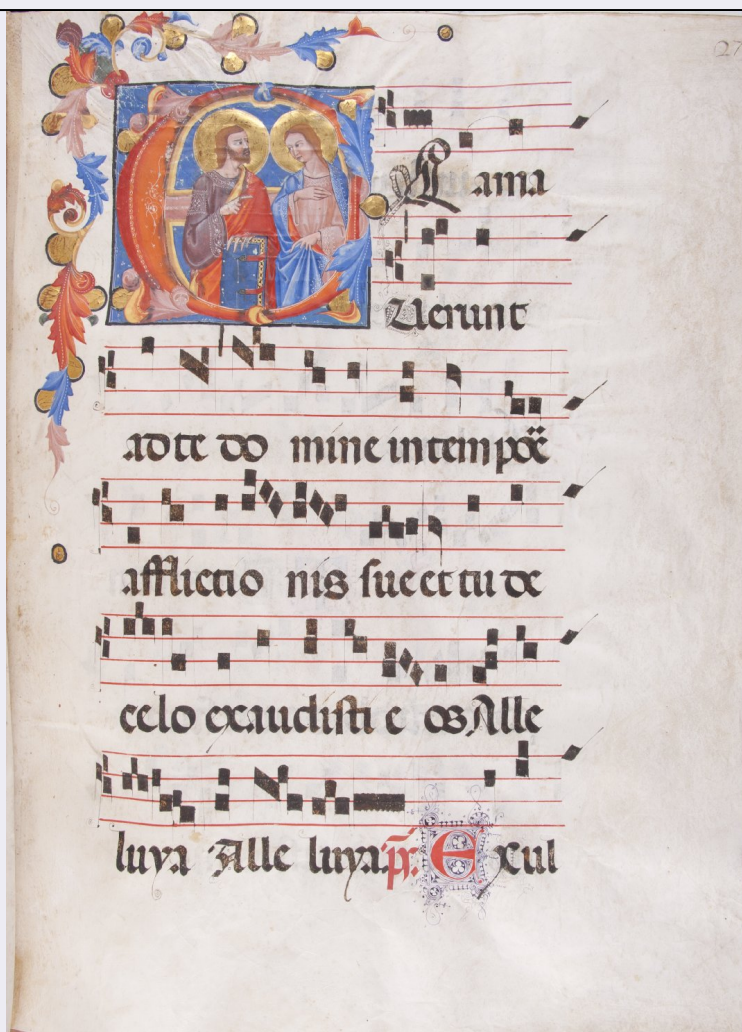 27
Clama
uerunt
ad te do mine in tempore
afflictio nis sue et tu de
celo exaudisti e os Alle
luya Alle luya. ps. Exul